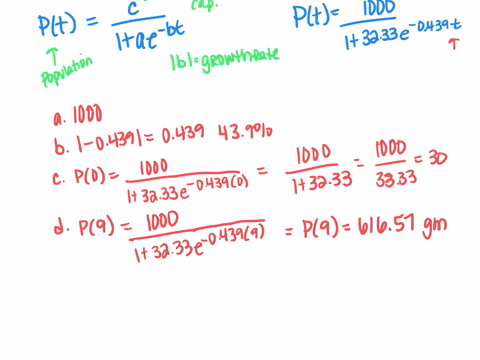 P(t) = c / 1+ae^-bt
cap.
P(t) = 1000 / 1+32.33e^-0.439t
↑ Population
|b| = growth rate
↑
a. 1000
b. |-0.439| = 0.439 43.9%
c. P(0) = 1000 / 1+32.33e^-0.439(0) = 1000 / 1+32.33 = 1000 / 33.33 = 30
d. P(9) = 1000 / 1+32.33e^-0.439(9) = P(9) = 616.57 gm